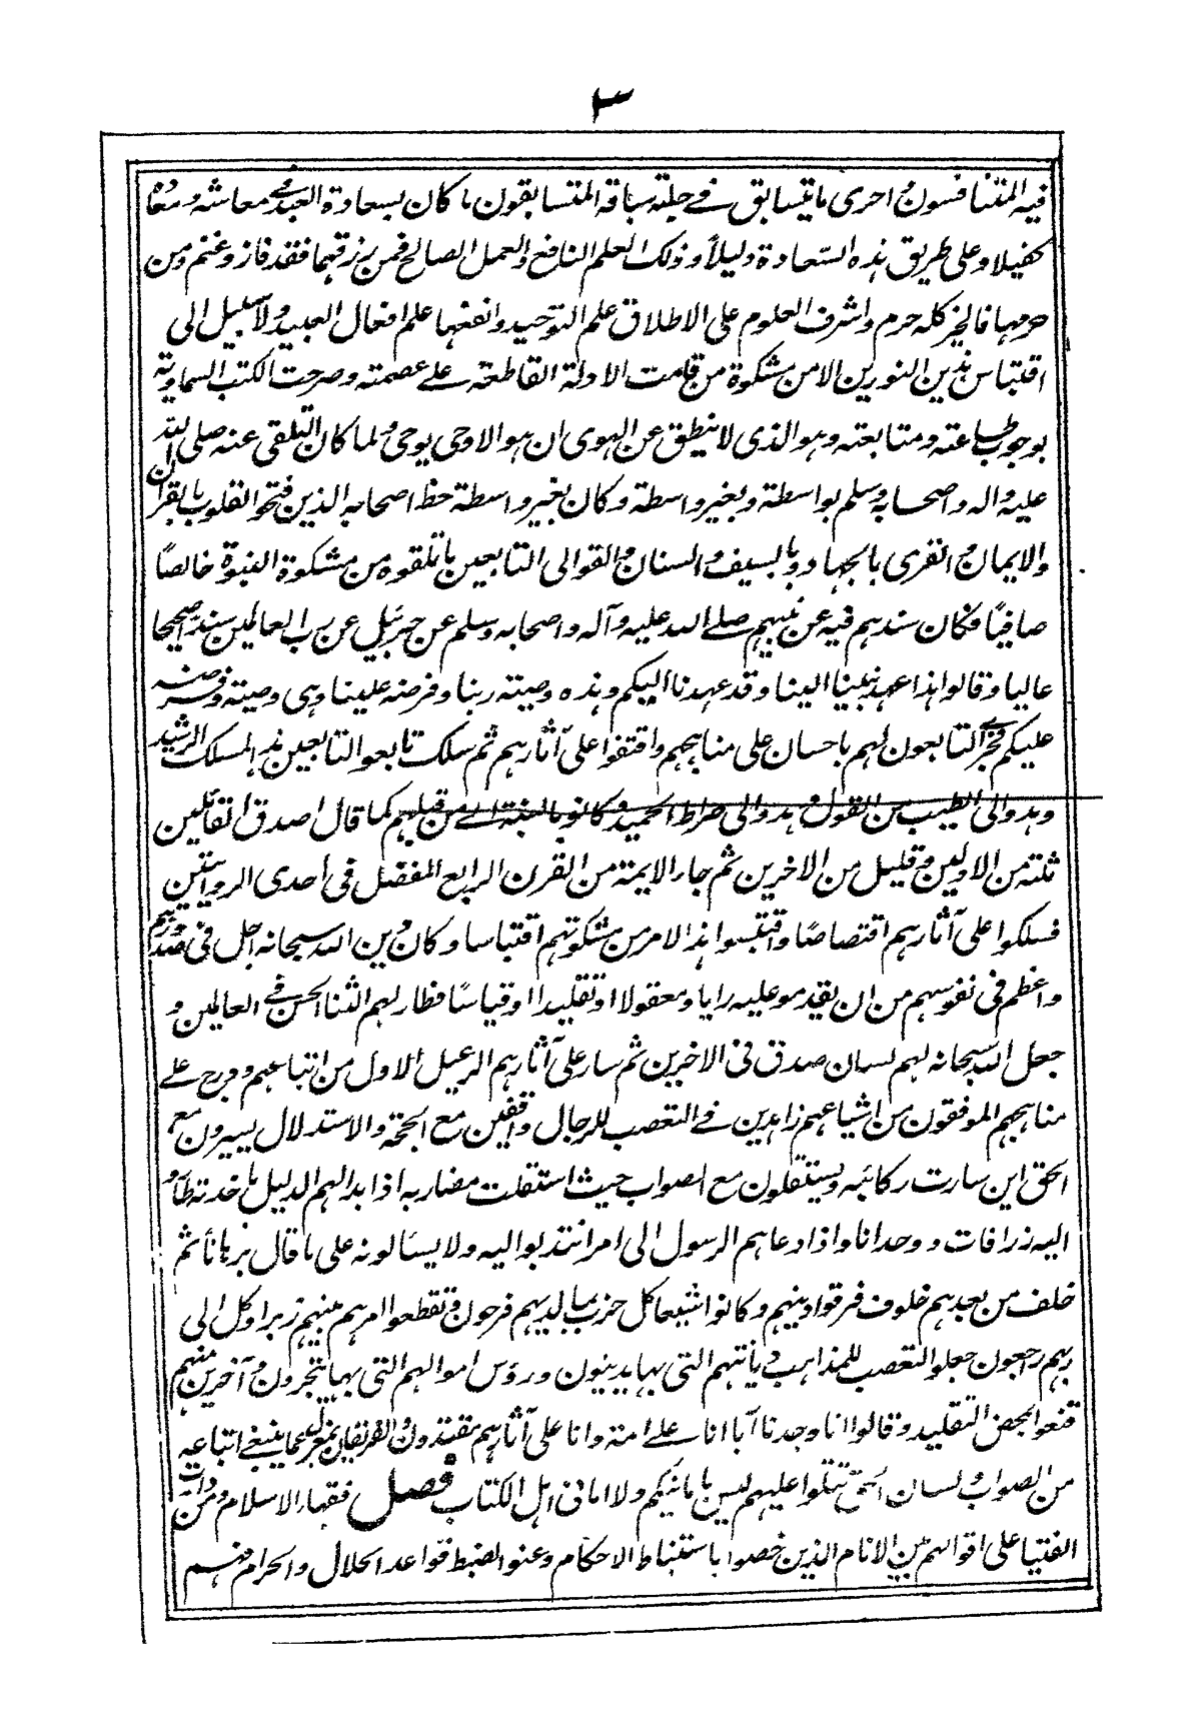 ٣
فيه المتنافسون و احرى ما يتسابق في حلبة سباقه المتسابقون ما كان بسعادة العبد في معاشه و معاده
كفيلا و على طريق هذه السعادة دليلاً و ذلك العلم النافع و العمل الصالح فمن رزقهما فقد فاز و غنم و من
حرمهما فالخير كله حرم و اشرف العلوم على الاطلاق علم التوحيد و انفعها علم افعال العبيد و لا سبيل الى
اقتباس هذين النورين الا من مشكوة من قامت الادلة القاطعة على عصمته و صرحت الكتب السماوية
بوجوب طاعته و متابعته و هو الذى لا ينطق عن الهوى ان هو الا وحى يوحى و لما كان التلقى عنه صلى الله
عليه و اله و اصحابه و سلم بواسطة و بغير واسطة و كان بغير واسطة حظ اصحابه الذين فتحوا القلوب بالقران
و الايمان و القرى بالجهاد و بالسيف و السنان و القوا الى التابعين ما تلقوه من مشكوة النبوة خالصًا
صافيًا فكان سندهم فيه عن نبيهم صلے الله عليه و آله و اصحابه و سلم عن جبرئيل عن رب العالمين سندا صحيحا
عاليا و قالوا هذا عهد نبينا الينا و قد عهدنا اليكم و هذه وصية ربنا و فرضه علينا و هى وصيته و فرضه
عليكم فجرى التابعون لهم باحسان على مناهجهم و اقتفوا على آثارهم ثم سلك تابعو التابعين هذا المسلك الرشيد
و هدوا الى الطيب من القول و هدوا الى صراط الحميد و كانوا بالنسبة الى من قبلهم كما قال اصدق القائلين
ثلة من الاولين و قليل من الاخرين ثم جاء الايمة من القرن الرابع المفضل فى احدى الروايتين
فسلكوا على آثارهم اقتصاصًا و اقتبسوا هذا الامر من مشكوتهم اقتباسا و كان دين الله سبحانه اجل فى صدورهم
و اعظم فى نفوسهم من ان يقدموا عليه رايا و معقولا او تقليدا او قياسًا فطار لهم الثنا الحسن في العالمين و
جعل الله سبحانه لهم لسان صدق فى الاخرين ثم سار على آثارهم الرعيل الاول من اتباعهم و درج على
مناهجهم الموفقون من اشياعهم زاهدين في التعصب للرجال واقفين مع الحجة و الاستدلال يسيرون مع
الحق اين سارت ركائبه و يستقلون مع الصواب حيث استقلت مضاربه اذا بدا لهم الدليل باخذته طاروا
اليه زرافات و وحدانا و اذا دعاهم الرسول الى امر انتدبوا اليه و لا يسألونه على ما قال برهانا ثم
خلف من بعدهم خلوف فرقوا دينهم و كانوا شيعا كل حزب بما لديهم فرحون و تقطعوا امرهم بينهم زبرا و كل الى
ربهم راجعون جعلوا التعصب للمذاهب ديانتهم التى بها يدينون و رؤس اموالهم التى بها يتجرون و آخرين منهم
قنعوا بمحض التقليد و قالوا انا وجدنا آباءنا على امة و انا على آثارهم مقتدون و الفريقان بمعزل عما ينبغي اتباعه
من الصواب و لسان الحق يتلوا عليهم ليس بامانيكم و لا امانى اهل الكتاب فصل فقهاء الاسلام و من دارت
الفتيا على اقوالهم بين الانام الذين خصوا باستنباط الاحكام و عنوا بضبط قواعد الحلال و الحرام فهم